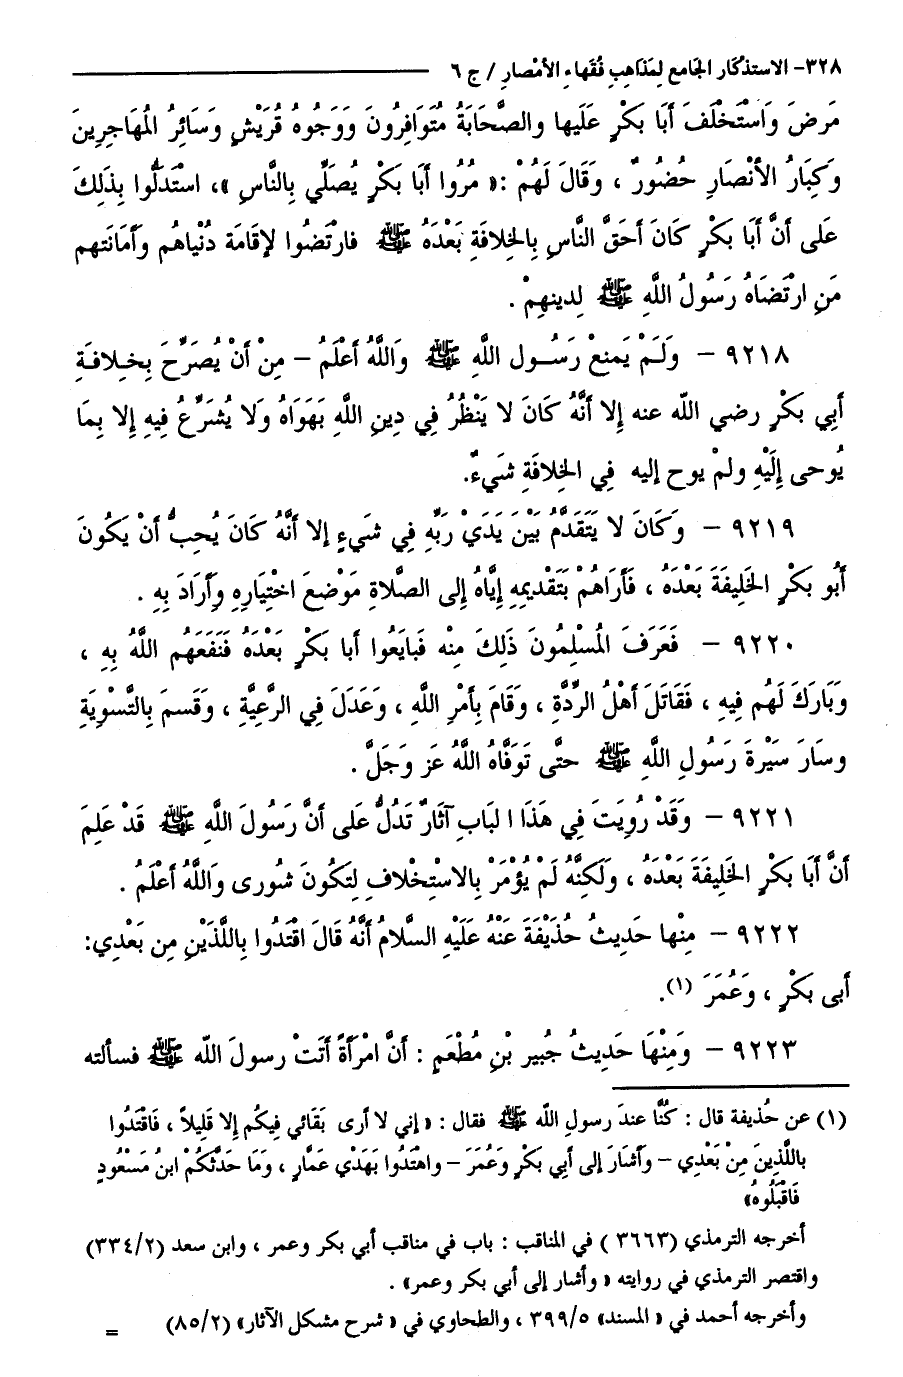 ٣٢٨- الاستذكار الجامع لمَذاهِبِ فُقَهاءِ الأمْصارِ / ج ٦
مَرضَ وَاسْتَخْلَفَ أبَا بكْرٍ عَلَيها والصَّحَابَةُ مُتَوَافِرُونَ وَوَجُوهُ قُرَيْشٍ وَسَائِرُ المُهَاجِرِينَ
وَكِبَارُ الأنْصَارِ حُضُورٌ ، وَقَالَ لَهُمْ :« مُرُوا أبَا بَكْرٍ يُصَلِّي بِالنَّاسِ »، اسْتَدَلُّوا بِذَلِكَ
عَلَى أنَّ أبَا بَكْرٍ كَانَ أحَقَّ النَّاسِ بِالخِلافَةِ بَعْدَهُ ﷺ فارْتَضُوا لإقَامَة دُنْياهُم وأمَانَتهم
مَنِ ارْتَضَاهُ رَسُولُ اللَّهِ ﷺ لِدينهِمْ .
٩٢١٨ – وَلَمْ يَمنعْ رَسُــول اللَّهِ ﷺ وَاللَّهُ أعْلَمُ – مِنْ أنْ يُصَرِّحَ بِـخِـلافَـةِ
أبِي بَكْرٍ رضي اللّه عنه إلا أنَّهُ كَانَ لا يَنْظُرُ فِي دِينِ اللَّهِ بَهَوَاهُ وَلا يُشَرِّعُ فِيهِ إلا بِمَا
يُوحى إلَيْهِ ولمْ يوح إليه فِي الخِلافَةِ شَيءٌ.
٩٢١٩ – وَكَانَ لا يَتَقَدَّمُ بَيْنَ يَدَيْ رَبِّهِ فِي شَيءٍ إلا أنَّهُ كَانَ يُحِبُّ أنْ يَكُونَ
أبُو بَكْرٍ الخَلِيفَةَ بَعْدَهُ ، فَأرَاهُمْ بتَقْدِيمِهِ إيَّاهُ إلى الصَّلاةِ مَوْضعَ اخْتِيَارِهِ وأرَادَ بِهِ .
٩٢٢٠ – فَعَرَفَ المُسْلِمُونَ ذَلِكَ مِنْه فَبايَعُوا أبا بَكْرٍ بَعْدَهُ فَنَفَعَهُم اللَّهُ بِهِ ،
وَبَارَكَ لَهُم فِيهِ ، فَقَاتَلَ أهْلُ الرِّدَّةِ ، وَقَامَ بِأمْرِ اللَّهِ ، وَعَدَلَ فِي الرَّعِيَّةِ ، وَقَسمَ بِالتَّسْوِيَةِ
وسَارَ سَيْرةَ رَسُولِ اللَّهِ ﷺ حتَّى تَوَفَّاهُ اللَّهُ عَز وَجَلَّ .
٩٢٢١ – وَقَدْ رُوِيَتَ فِي هَذَا ا لبَابِ آثَارٌ تَدُلُّ عَلَى أنَّ رَسُولَ اللَّهِ ﷺ قَدْ عَلِمَ
أنَّ أبَا بَكْرٍ الخَلِيفَةَ بَعْدَهُ ، وَلَكِنَّهُ لَمْ يُؤْمَرْ بِالاسْتِخْلافِ لِتَكُونَ شُورى وَاللَّهُ أعْلَمُ .
٩٢٢٢ – مِنْها حَدِيثُ حُذَيْفَةَ عَنْهُ عَلَيْهِ السَّلامُ أنَّهُ قَالَ اقْتَدُوا بِاللَّذَيْنِ مِن بَعْدِي:
أبى بَكْرٍ ، وَعُمَرَ (١).
٩٢٢٣ – وَمِنْهَا حَدِيثُ جُبير بْنِ مُطْعَمٍ : أنَّ امْرَأةً أتَتْ رسولَ اللّه ﷺ فسألته
(١) عن حُذيفة قال : كُنَّا عندَ رسولِ اللّه ﷺ فقال : « إني لا أرى بَقَائي فيكُم إلا قَليلاً ، فَاقْتَدُوا
باللَّذينَ مِنْ بَعْدِي – وَأشَارَ إلى أبِي بكْرٍ وَعُمَرَ – واهْتَدُوا بَهَدْي عَمَّارٍ ، وَمَا حَدَّثَكُمْ ابنُ مَسْعُودٍ
فَاقْبَلُوهُ»
أخرجه الترمذي (٣٦٦٣ ) في المناقب : باب في مناقب أبي بكر وعمر ، وابن سعد (٣٣٤/٢)
واقتصر الترمذي في روايته « وأشار إلى أبي بكر وعمر» .
وأخرجه أحمد في « المسند» ٣٩٩/٥ ، والطحاوي في « شرح مشكل الآثار» (٨٥/٢) =